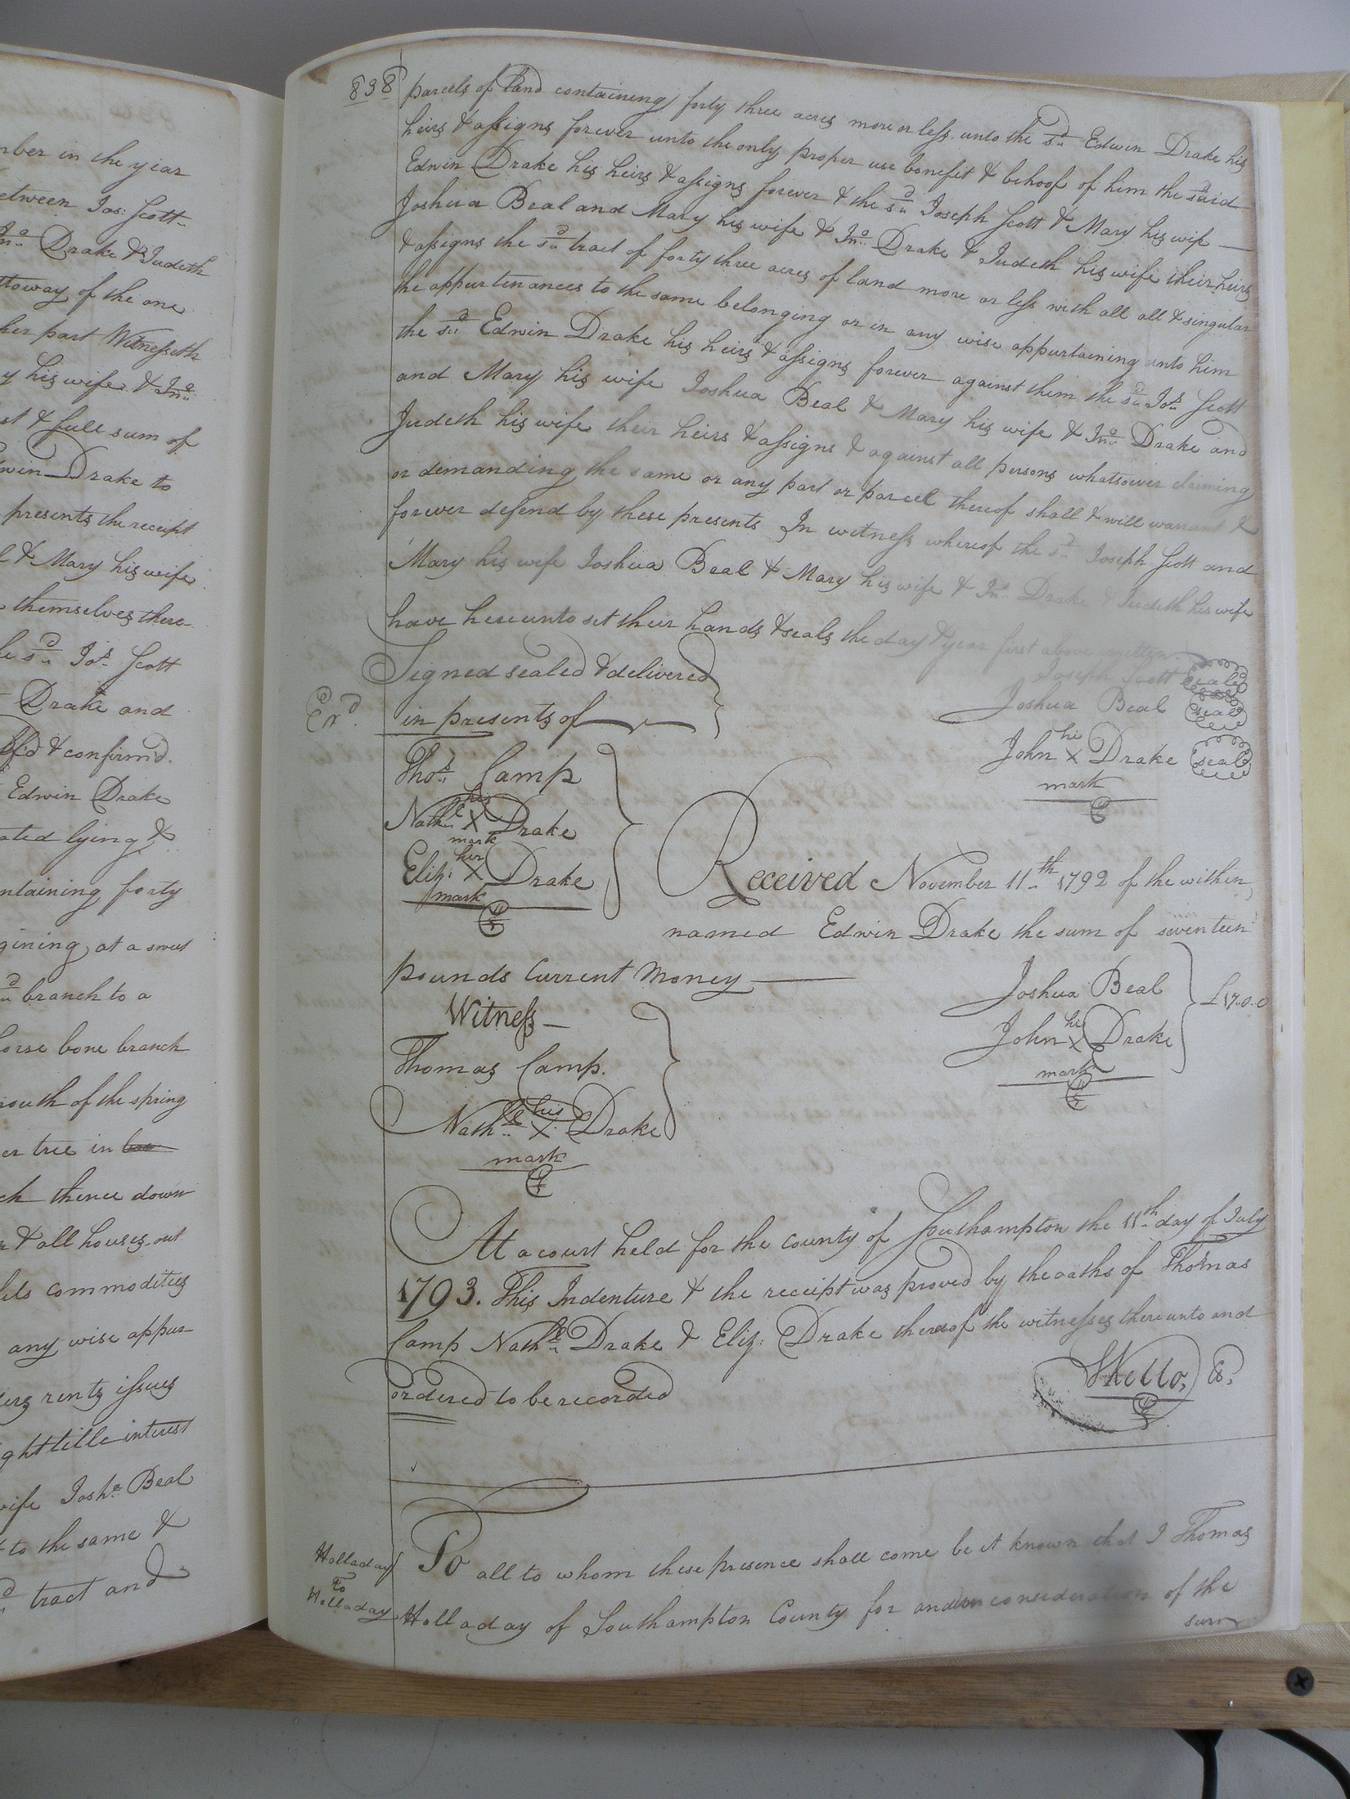 mber in the year
etween Jos: Scott
Jno Drake & Judeth
ttoway of the one
her part Witnesseth
y his wife & Jno
st & full sum of
dwin Drake to
presents the receipt
l & Mary his wife
themselves there-
he sd Jos. Scott
Drake and
& confirm'd.
Edwin Drake
ated lying &
ntaining forty
gining at a sweet
d branch to a
horse bone branch
mouth of the spring
er tree in
ch thence down
& all houses out
els commodities
any wise appur-
ers rents issues
ght title interest
wife Josha Beal
to the same &
d tract and
838 parcels of land containing forty three acres more or less unto the sd Edwin Drake his
heirs & assigns forever unto the only proper use benefit & behoof of him the said
Edwin Drake his heirs & assigns forever & the sd Joseph Scott & Mary his wife
Joshua Beal and Mary his wife & Jno Drake & Judeth his wife their heirs
& assigns the sd tract of forty three acres of land more or less with all all & singular
the appurtenances to the same belonging or in any wise appurtaining unto him
the sd Edwin Drake his heirs & assigns forever against them the sd Jos. Scott
and Mary his wife Joshua Beal & Mary his wife & Jno Drake and
Judeth his wife their heirs & assigns & against all persons whatsoever claiming
or demanding the same or any part or parcel thereof shall & will warrant &
forever defend by these presents In witness whereof the sd Joseph Scott and
Mary his wife Joshua Beal & Mary his wife & Jno. Drake & Judeth his wife
have hereunto set their hands & seals the day & year first above written
Signed sealed & delivered
in presents of
Exd.
Joseph Scott seal
Joshua Beal seal
John his X mark Drake seal
Thos. Camp
Nathl his X mark Drake
Eliz: her X mark Drake
Received November 11th 1792 of the within
named Edwin Drake the sum of seventeen
pounds Current Money
Joshua Beal
John his X mark Drake
£17.0.0
Witness
Thomas Camp.
Nathl his X mark Drake
At a court held for the county of Southampton the 11th day of July
1793. This Indenture & the receipt was proved by the oaths of Thomas
Camp Nathl Drake & Eliz: Drake thereof the witnesses thereunto and
ordered to be recorded
SKello, C.
Holladay
To
Holladay
To all to whom these presence shall come be it known that I Thomas
Holladay of Southampton County for and in consideration of the
sum